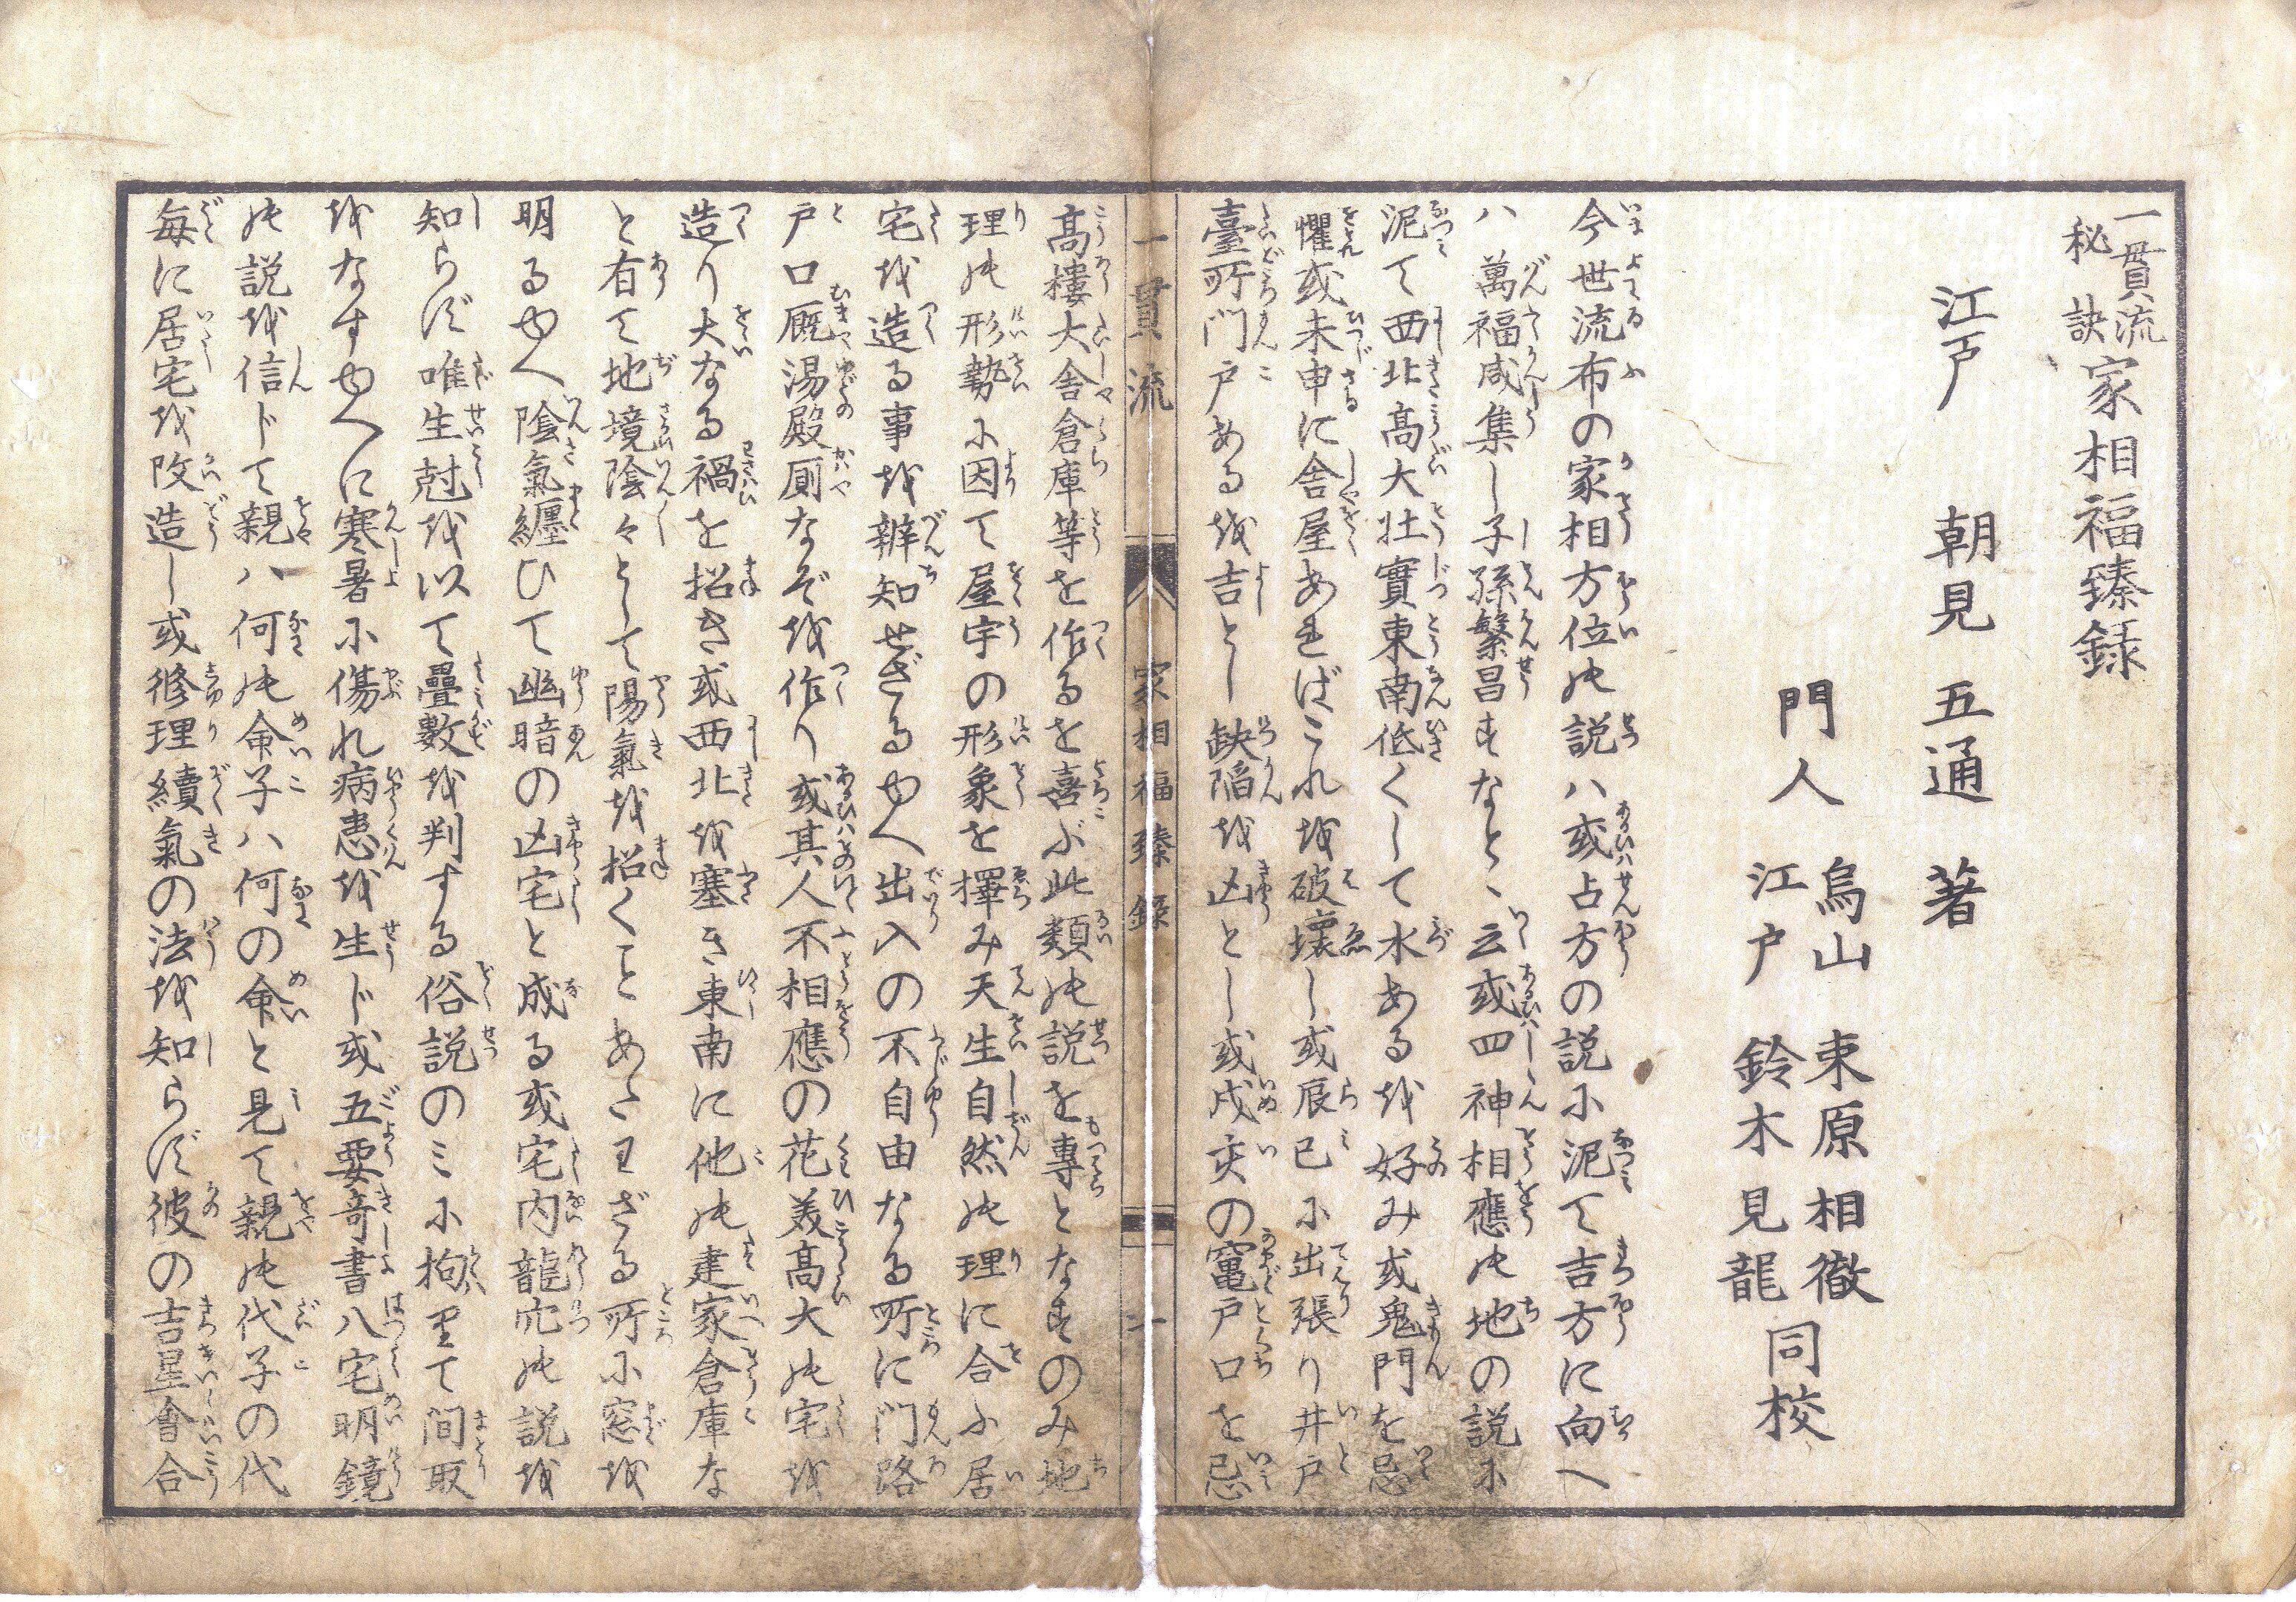 一貫流
秘訣
家相福臻録
江戸　朝見五通著
門人　烏山　東原相徹
江戸　鈴木見龍　同校
今世流布の家相方位の説ハ或占方の説に泥て吉方に向へ
ハ萬福咸集し子孫繁昌すなと云或四神相應の地の説に
泥て西北高大壮實東南低くして水あるを好み或鬼門を忌
懼或未申に舎屋あればこれを破壊し或辰巳に出張り井戸
臺所門戸あるを吉とし缺陷を凶とし或戌亥の竃戸口を忌
一貫流　家相福臻録　一
髙樓大舎倉庫等を作るを喜ぶ此類の説を專となすのみ地
理の形勢に因て屋宇の形象を擇み天生自然の理に合ふ居
宅を造る事を辨知せざるゆへ出入の不自由なる所に門路
戸口厩湯殿厠なぞを作り或其人不相應の花美髙大の宅を
造り大なる禍を招き或西北を塞き東南に他の建家倉庫な
と有て地境陰々として陽氣を招くことあたわざる所に窓を
明るゆへ陰氣纒ひて幽暗の凶宅と成る或宅内龍穴の説を
知らず唯生尅を以て疊數を判する俗説のミに拘りて間取
をなすゆへに寒暑に傷れ病患を生ド或五要奇書八宅明鏡
の説を信ドて親ハ何の命子ハ何の命と見て親の代子の代
毎に居宅を改造し或修理續氣の法を知らず彼の吉星會合